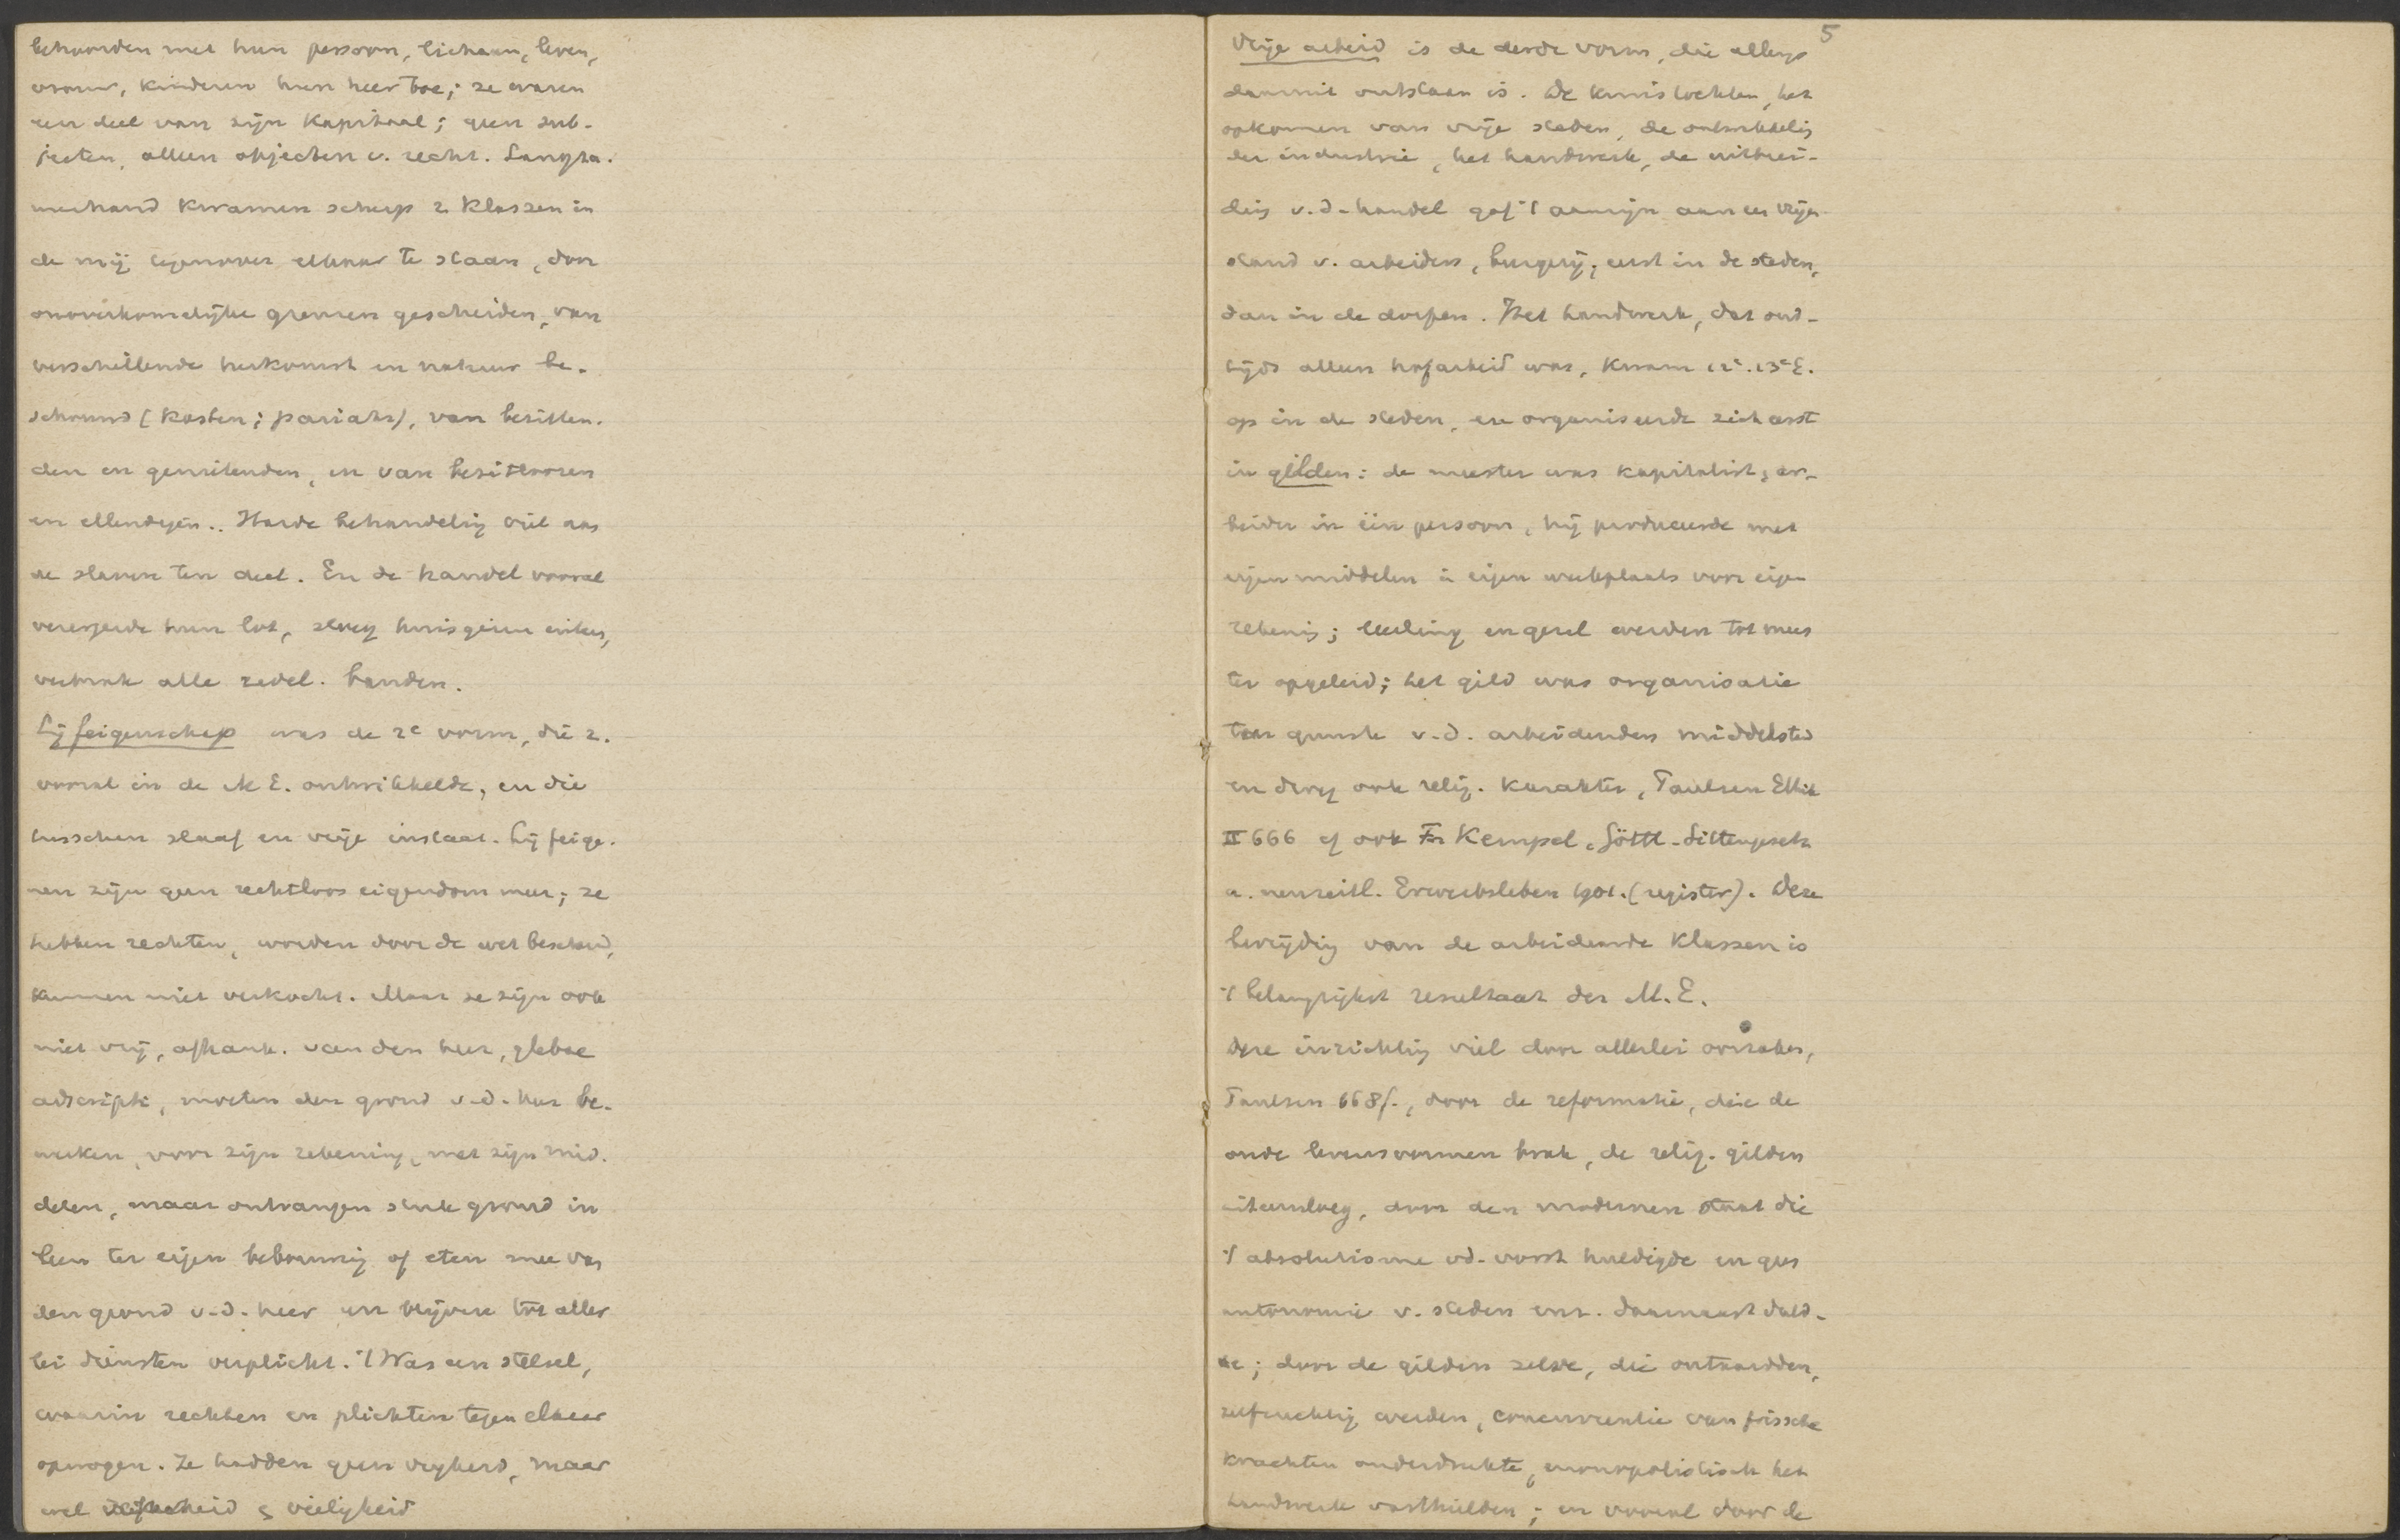 behoorden met hun persoon, lichaam, leven,
vrouw, kinderen hun heer toe; ze waren
een deel van zijn kapitaal; geen sub-
jecten, alleen objecten v. recht. Langza-
merhand kwamen scherp 2 klassen in
de mij tegenover elkaar te staan, door
onoverkomelijke grenzen gescheiden, van
verschillende herkomst en natuur be-
schouwd (kasten; pariahs), van bezitten-
den en genietenden, en van bezitloozen
en ellendigen.. Harde behandelig viel aan
de slaven ten deel. En de handel vooral
verergerde hun lot, sloeg huisgezin uiteen,
verbrak alle zedel. banden.
Lijfeigenschap was de 2e vorm, die z.
vooral in de M.E. ontwikkelde, en die
tusschen slaaf en vrije instaat. Lijfeige-
nen zijn geen rechtloos eigendom meer; ze
hebben rechten, worden door de wet beschermd,
kunnen niet verkocht. Maar ze zijn ook
niet vrij, afhank. van den heer, glebae
adscripti, moeten den grond v.d. heer be-
werken, voor zijn rekening, met zijn mid-
delen, maar ontvangen stuk grond in
leen ter eigen bebouwing of eten mee van
den grond v.d. heer en blijven tot aller
lei diensten verplicht. 't Was een stelsel,
waarin rechten en plichten tegen elkaar
opwogen. Ze hadden geen vrijheid, maar
wel zekerheid & veiligheid
5
Vrije arbeid is de derde vorm, die allengs
daaruit ontstaan is. De kruistochten, het
opkomen van vrije steden, de ontwikkelig
der industrie, het handwerk, de uitbrei-
dig v.d. handel gaf 't aanzijn aan een vrijen
stand v. arbeiders, burgerij, eerst in de steden,
dan in de dorpen. Het handwerk, dat oud-
tijds alleen hofarbeid was, kwam 12e. 13e E.
op in de steden, en organiseerde zich eerst
in gilden: de meester was kapitalist & ar-
beider in één persoon, hij produceerde met
eigen middelen in eigen werkplaats voor eigen
rekenig; leerling en gezel werden tot mees
ter opgeleid; het gild was organisatie
ten gunste v.d. arbeidenden middelstand
en droeg ook relig. karakter, Paulsen Ethik
II 666 cf ook Fr Kempel, Göttl. Sittengesetz
u. neuzeitl. Erwerbsleben 1901. (register). Deze
bevrijdig van de arbeidende klassen is
't belangrijkst resultaat der M.E.
Deze inrichtig viel door allerlei oorzaken,
Paulsen 668f., door de reformatie, die de
oude levensvormen brak, de relig. gilden
uiteensloeg, door den modernen staat die
't absolutisme vd. vorst huldigde en geen
autonomie v. steden enz. daarnaast duld-
de; door de gilden zelve, die ontaardden,
zelfzuchtig werden, concurrentie van frissche
krachten onderdrukte, monopolistisch het
handwerk vasthielden; en vooral door de